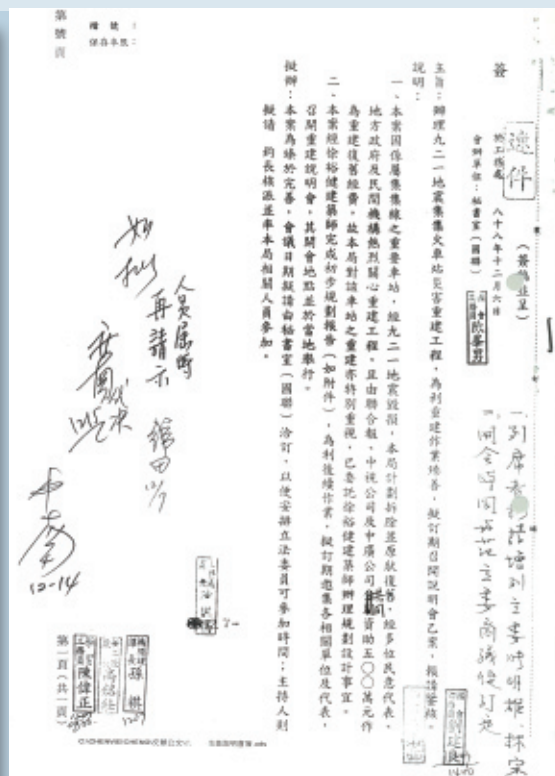 檔號：
保存年限：
第　號　頁
簽
速件
於工務處　八十八年十二月六日
會辦單位：秘書室（國聯）
主旨：辦理九二一地震集集火車站災害重建工程，為利重建作業增善，擬訂期召開說明會乙案，報請鑒核。
說明：
一、本案因係屬集集線之重要車站，經九二一地震毀損，本局計劃拆除並原狀復舊，經多位民意代表、
地方政府及民間機構熱烈關心重建工程，且由聯合報、中視公司及中廣公司共同資助五○○萬元作
為重建復舊經費，故本局對該車站之重建亦特別重視，已委託徐裕健建築師辦理規劃設計事宜。
二、本案經徐裕健建築師完成初步規劃報告（如附件），為利後續作業，擬訂期邀集各相關單位及代表，
召開重建說明會，其開會地點並於當地舉行。
擬辦：本案為臻於完善，會議日期擬請由秘書室（國聯）洽訂，以使安排立法委員可參加時間；主持人則
擬請　鈞長核派並率本局相關人員參加。
人員屆時
再請示
如擬
12-14
陳偉正
第一頁（共一頁）